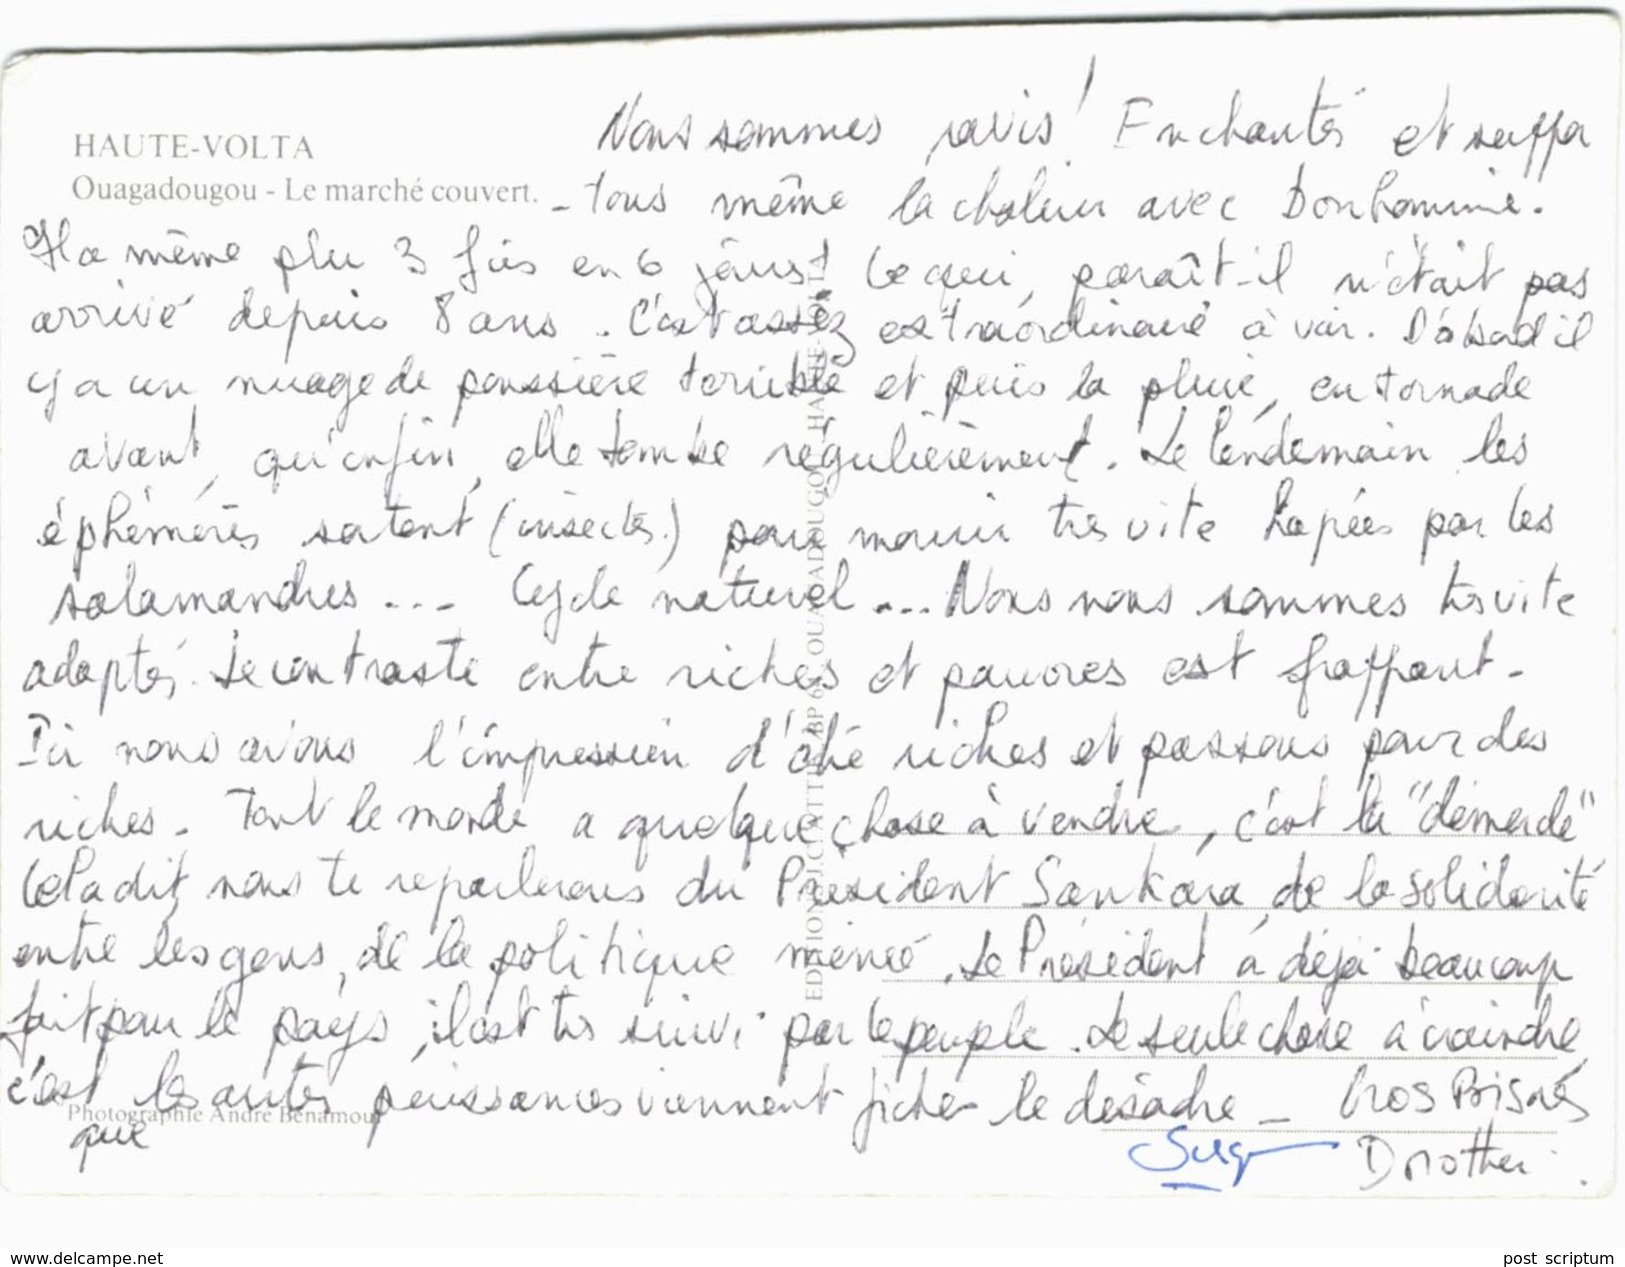 HAUTE-VOLTA
Ouagadougou - Le marché couvert.
Nous sommes ravis! Enchantés et suppor
-tons même la chaleur avec bonhomie.
Il a même plu 3 fois en 6 jours! Ce qui, paraît-il n'était pas
arrivé depuis 8 ans. C'est assez extraordinaire à voir. D'abord il
y a un nuage de poussière terrible et puis la pluie, en tornade
avant, qu'enfin, elle tombe régulièrement. Le lendemain les
éphémères sortent (insectes.) pour mourir très vite hapées par les
salamandres... Cycle naturel... Nous nous sommes très vite
adaptés. Le contraste entre riches et pauvres est frappant.
Ici nous avons l'impression d'être riches et passons pour des
riches. Tout le monde a quelque chose à vendre, c'est la "démerde"
Cela dit, nous te reparlerons du Président Sankara, de la solidarité
entre les gens, de la politique menée. Le Président a déjà beaucoup
fait pour le pays, il est très suivi par le peuple. La seule chose à craindre,
c'est les autres puissances viennent ficher le désordre - Gros Baisers
que
Serge Dorothée
Photographie André Benamour
EDITIONS J.C. BP OUAGADOUGOU - HAUTE-VOLTA
www.delcampe.net
post scriptum